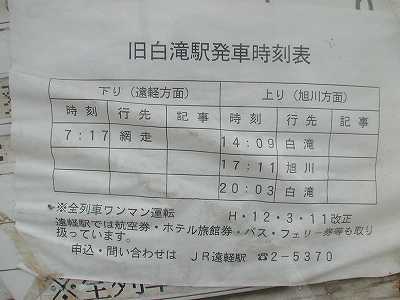 旧白滝駅発車時刻表
下り(遠軽方面) 上り(旭川方面)
時刻 行先 記事 時刻 行先 記事
7:17 網走 14:09 白滝
17:11 旭川
20:03 白滝
※全列車ワンマン運転 H・12・3・11改正
遠軽駅では航空券・ホテル旅館券・バス・フェリー券等も取り
扱っています。
申込・問い合わせは JR遠軽駅 ☎2-5370
※全列車